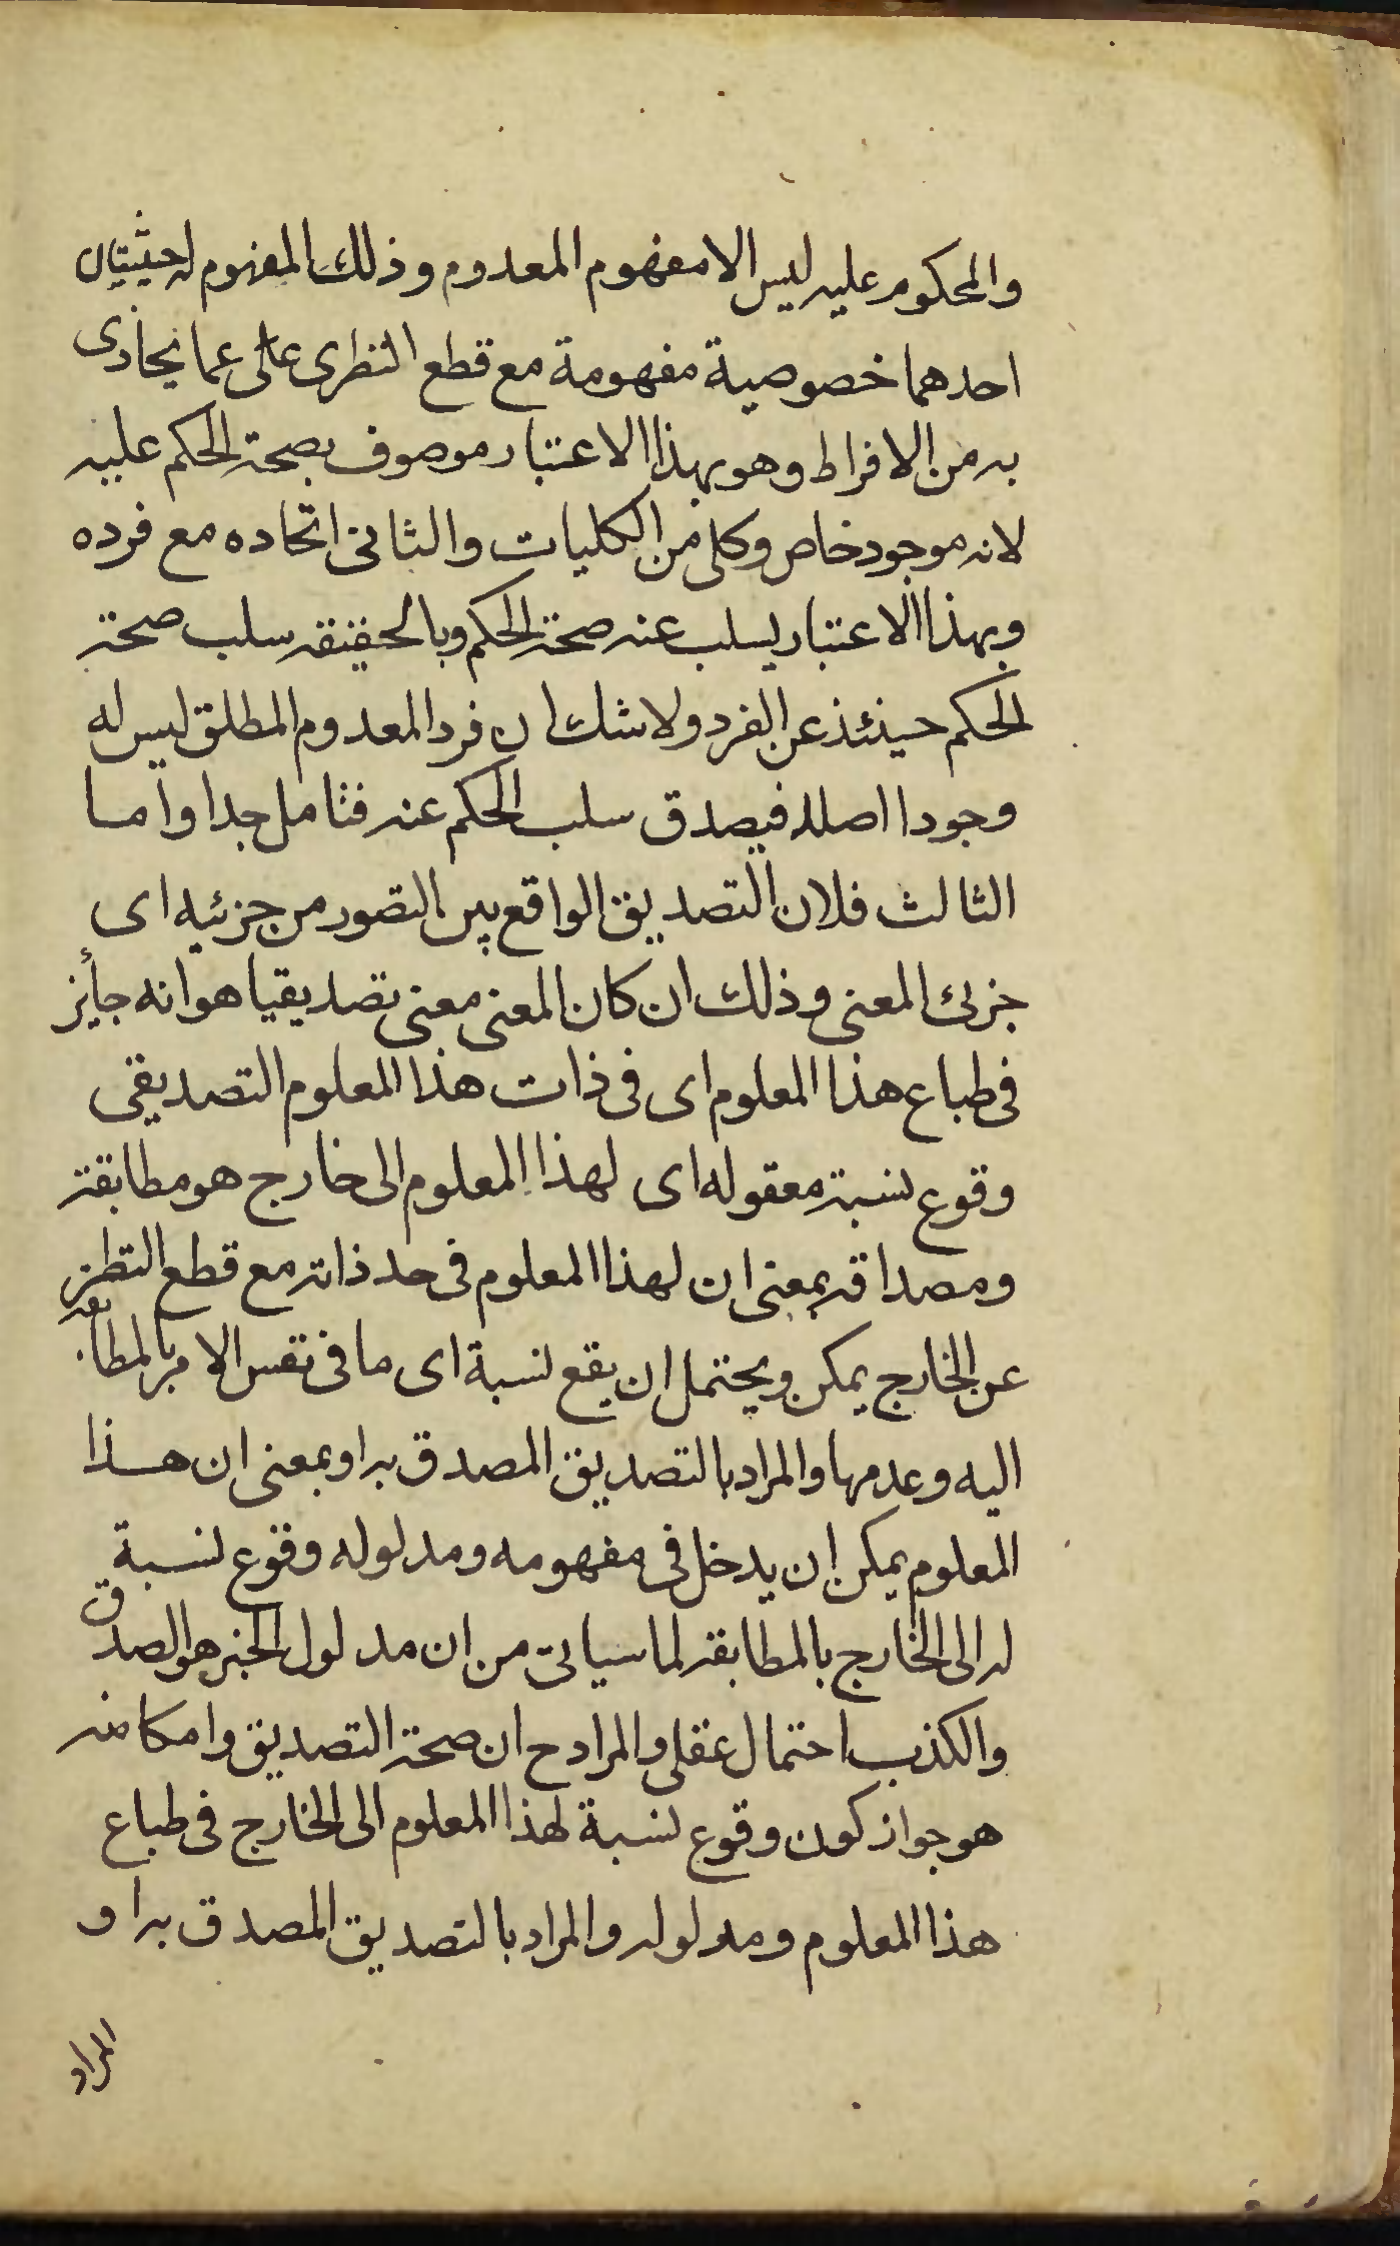 والمحكوم عليه ليس الا مفهوم المعدوم وذلك المفهوم له حيثيتان
احدهما خصوصية مفهومة مع قطع النظرى على عما يحاذى
به من الافراط وهو بهذا الاعتبار موصوف بصحة الحكم عليه
لانه موجود خاص وكلى من الكليات والثانى اتحاده مع فرده
وبهذا الاعتبار يسلب عنه صحة الحكم وبالحقيقة سلب صحة
الحكم حينئذ عن الفرد ولا شك ان فرد المعدوم المطلق ليس له
وجودا اصلا فيصدق سلب الحكم عنه فتامل جدا واما
الثالث فلان التصديق الواقع بين التصور من جزئيه اى
جزئ المعنى وذلك ان كان المعنى معنى تصديقيا هو انه جائز
فى طباع هذا المعلوم اى فى ذات هذا المعلوم التصديقى
وقوع نسبة معقوله اى لهذا المعلوم الى خارج هو مطابقة
ومصداقه بمعنى ان لهذا المعلوم فى حد ذاته مع قطع النظر
عن الخارج يمكن ويحتمل ان يقع نسبة اى ما فى نفس الامر بالمطابقة
اليه وعدمها والمراد بالتصديق المصدق به او بمعنى ان هذا
المعلوم يمكن ان يدخل فى مفهومه ومدلوله وقوع نسبة
له الى الخارج بالمطابقة لما سياتى من ان مدلول الخبر هو الصدق
والكذب احتمال عقلى والمراد ح ان صحة التصديق وامكانه
هو جواز كون وقوع نسبة لهذا المعلوم الى الخارج فى طباع
هذا المعلوم ومدلوله والمراد بالتصديق المصدق به او
المراد